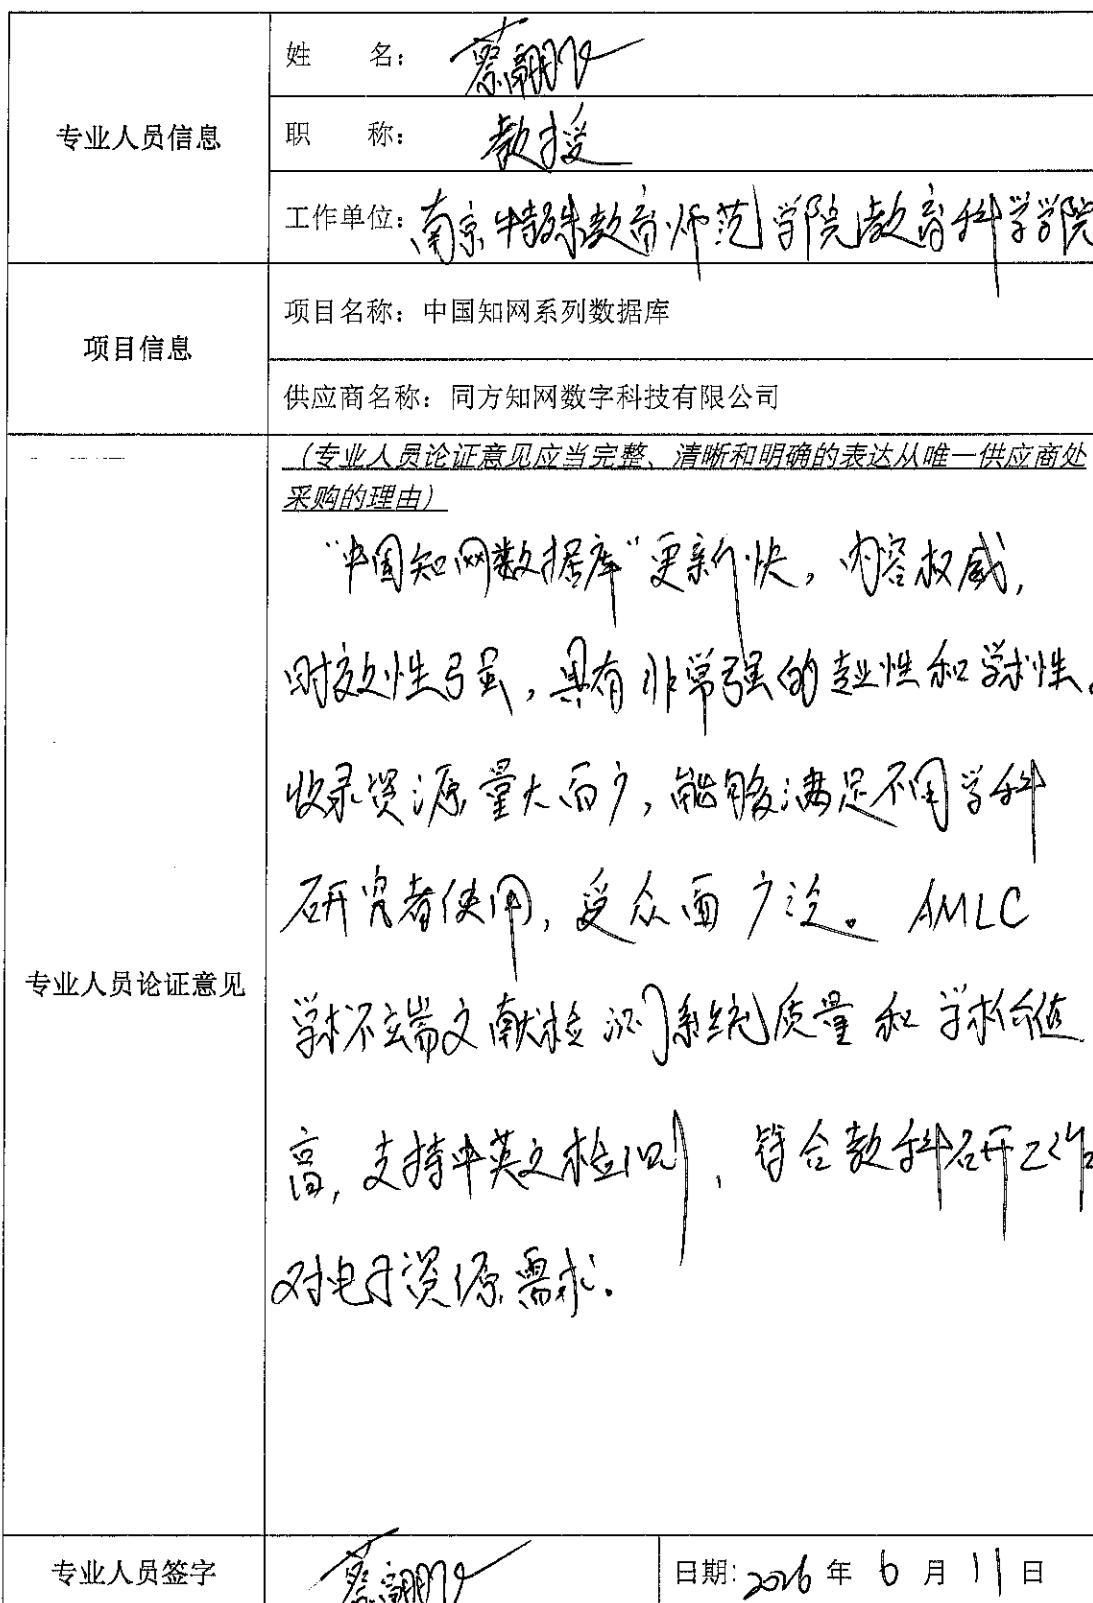 姓 名： 蔡翮飞
专业人员信息
职 称： 教授
工作单位：南京特殊教育师范学院教育科学学院
项目名称：中国知网系列数据库
项目信息
供应商名称：同方知网数字科技有限公司
（专业人员论证意见应当完整、清晰和明确的表达从唯一供应商处
采购的理由）
“中国知网数据库”更新快，内容权威，
时效性强，具有非常强的专业性和学术性。
收录资源量大面广，能够满足不同学科
研究者使用，受众面广泛。AMLC
专业人员论证意见
学术不端文献检测系统质量和学术价值
高，支持中英文检测，符合教科研工作
对电子资源需求.
专业人员签字 蔡翮飞 日期：2026年6月11日